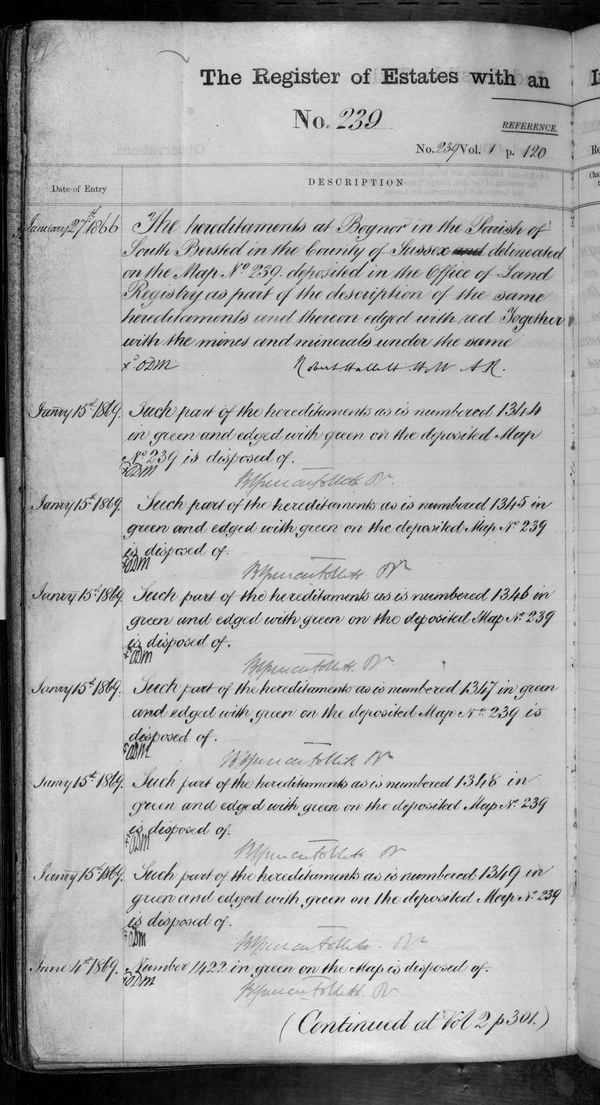 The Register of Estates with an
No. 239
REFERENCE.
No. 239 Vol. 1 p. 120
Date of Entry
DESCRIPTION
January 27th 1866
The hereditaments at Bognor in the Parish of
South Bersted in the County of Sussex and delineated
on the Map No 239. deposited in the Office of Land
Registry as part of the description of the same
hereditaments and thereon edged with red Together
with the mines and minerals under the same
ODM Robert Hallett A.R.
Janry 15th 1869. Such part of the hereditaments as is numbered 1344
in green and edged with green on the deposited Map
No 239 is disposed of.
ODM
Janry 15th 1869. Such part of the hereditaments as is numbered 1345 in
green and edged with green on the deposited Map No. 239
is disposed of.
ODM
Janry 15th 1869. Such part of the hereditaments as is numbered 1346 in
green and edged with green on the deposited Map No. 239
is disposed of.
ODM
Janry 15th 1869. Such part of the hereditaments as is numbered 1347 in green
and edged with green on the deposited Map No. 239 is
disposed of.
ODM
Janry 15th 1869. Such part of the hereditaments as is numbered 1348 in
green and edged with green on the deposited Map No. 239
is disposed of.
ODM
Janry 15th 1869. Such part of the hereditaments as is numbered 1349 in
green and edged with green on the deposited Map No. 239
is disposed of.
ODM
June 4th 1869. Number 1422 in green on the Map is disposed of.
ODM
(Continued at Vol 2 p 301.)